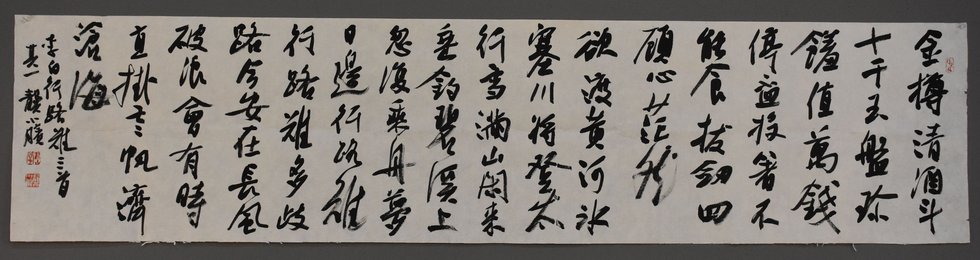 金樽清酒斗
十千玉盤珍
饈值萬錢
停盃投箸不
能食拔劍四
顧心茫然
欲渡黃河冰
塞川將登太
行雪滿山閑來
垂釣碧溪上
忽復乘舟夢
日邊行路難
行路難多歧
路今安在長風
破浪會有時
直掛雲帆濟
滄海
李白行路難三首
其一 龔小